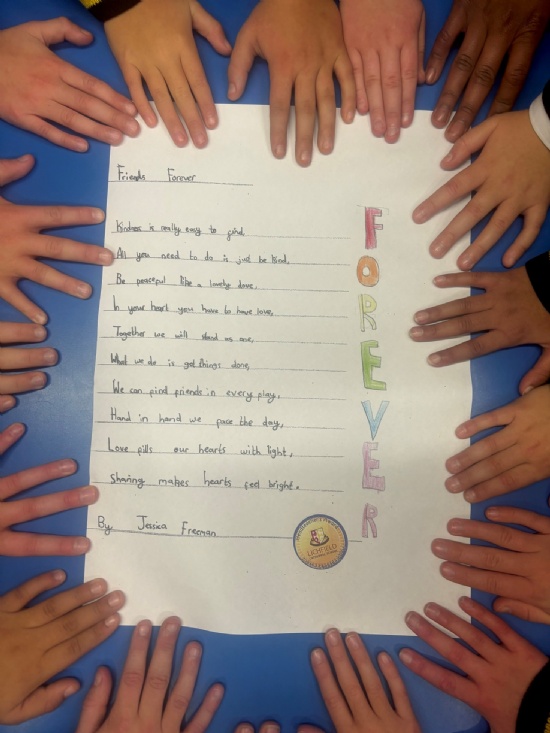 Friends Forever
Kindness is really easy to find,
All you need to do is just be kind,
Be peaceful like a lovely dove,
In your heart you have to have love,
Together we will stand as one,
What we do is get things done,
We can find friends in every play,
Hand in hand we face the day,
Love fills our hearts with light,
Sharing makes hearts feel bright.
By Jessica Freeman
FOREVER
LICHFIELD